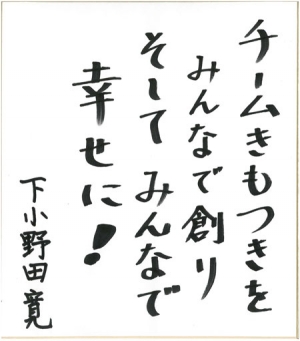 チームきもつきを
みんなで創り
そして みんなで
幸せに!
下小野田寛